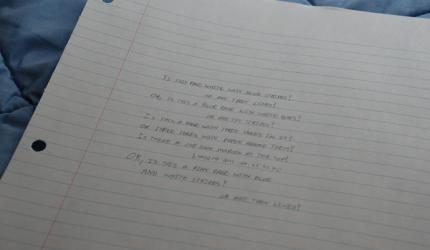 IS THIS PAGE WHITE WITH BLUE STRIPES?
OR ARE THEY LINES?
OR, IS THIS A BLUE PAGE WITH WHITE
OR ARE THEY STRIPES?
IS THIS A PAGE WITH THREE HOLES IN IT?
OR THREE HOLES WITH PAPER AROUND THEM?
IS THERE A MARGIN AT THE
OR, IS THIS A PINK PAGE WITH BLUE
AND WHITE STRIPES?
OR ARE THEY LINES?